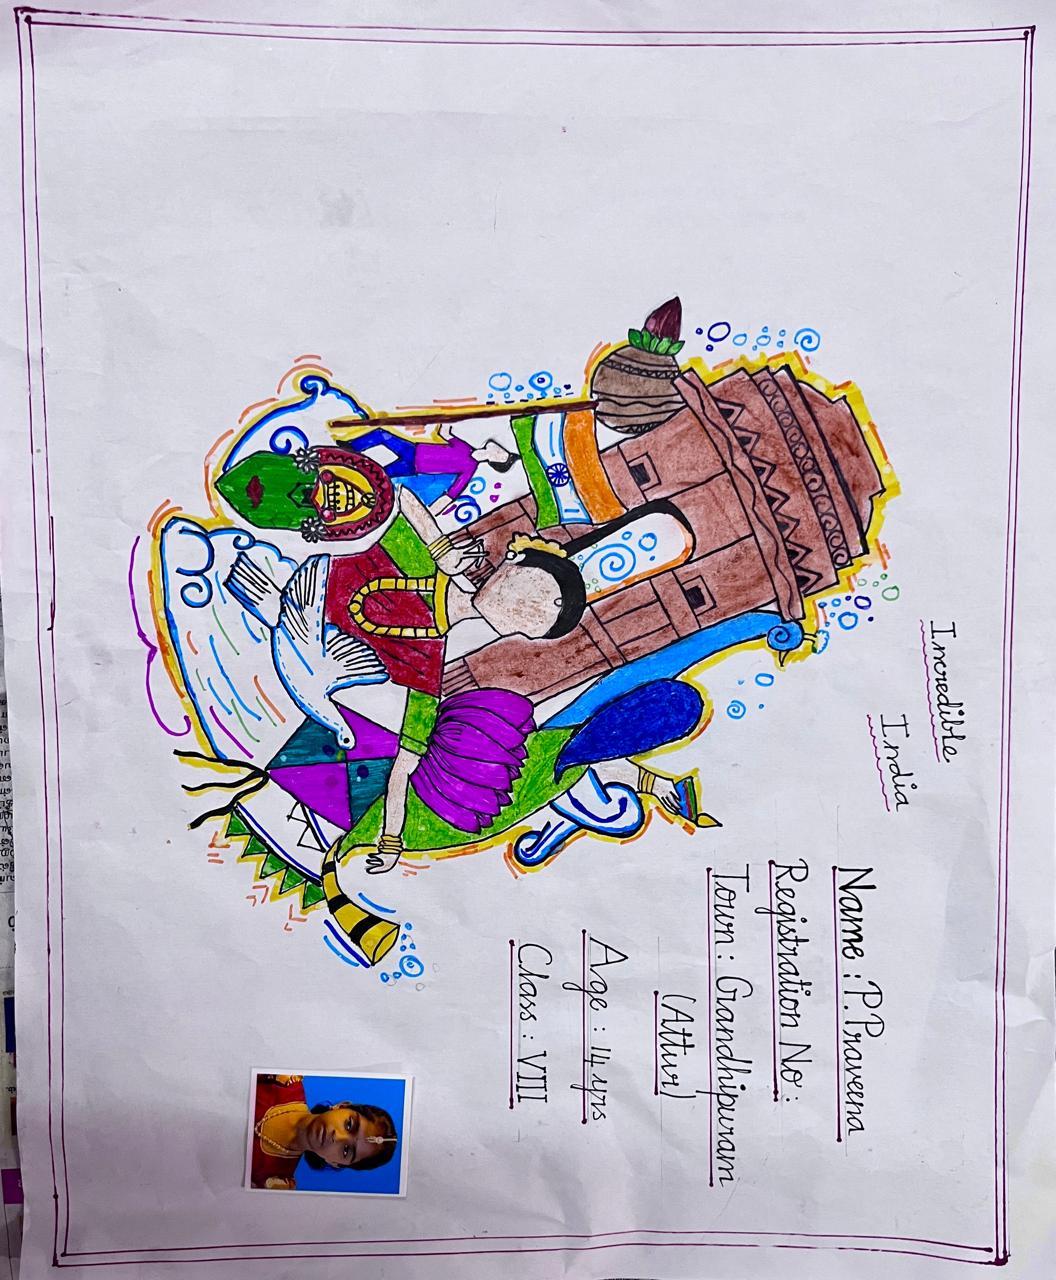 Incredible
India
Name : P. Praveena
Registration No :
Town : Gandhipuram
(Attur)
Age : 14 yrs
Class : VIII